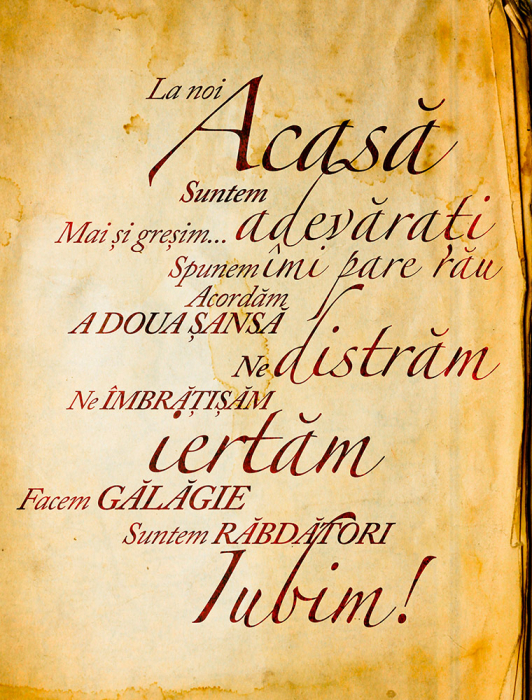 La noi
Acasă
Suntem
adevărați
Mai și greșim...
Spunem îmi pare rău
Acordăm
A DOUA ȘANSĂ
Ne distrăm
Ne ÎMBRĂȚIȘĂM
iertăm
Facem GĂLĂGIE
Suntem RĂBDĂTORI
Iubim!